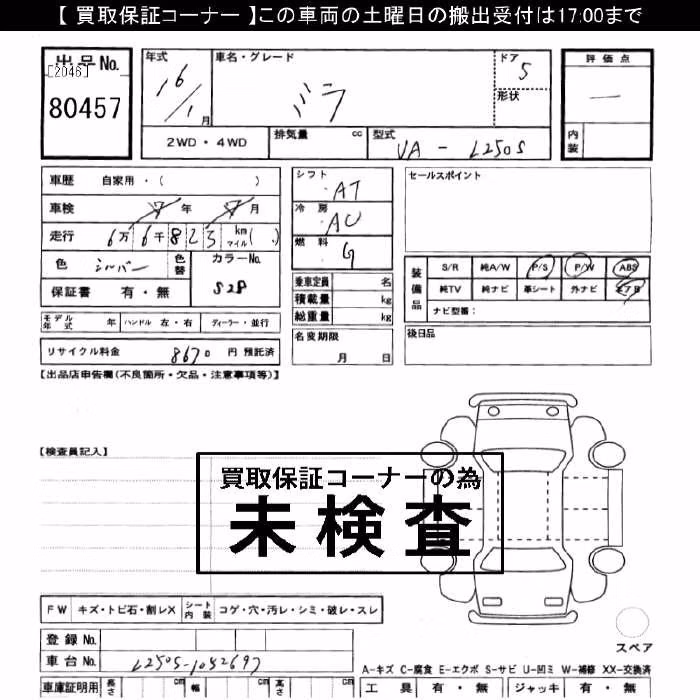 【 買取保証コーナー 】この車両の土曜日の搬出受付は17:00まで
出品No.
[2046]
80457
年式
16/1月
車名・グレード
ミラ
ドア
5
形状
評価点
―
内装
2WD・4WD
排気量 cc
型式
UA - L250S
車歴 自家用・( )
車検 年 月
走行 6万6千823 km マイル( )
色 シルバー 色替
カラーNo.
S28
保証書 有・無
モデル年式 年 ハンドル 左・右 ディーラー・並行
リサイクル料金 8670 円 預託済
シフト AT
冷房 AC
燃料 G
乗車定員 名
積載量 kg
総重量 kg
名変期限
月 日
セールスポイント
装備品
S/R 純A/W P/S P/W ABS
純TV 純ナビ 革シート 外ナビ エアB
ナビ型番:
後日品
【出品店申告欄(不良箇所・欠品・注意事項等)】
【検査員記入】
買取保証コーナーの為
未検査
FW キズ・トビ石・割レX シート内装 コゲ・穴・汚レ・シミ・破レ・スレ
登録No.
車台No. L250S-1052697
スペア
A-キズ C-腐食 E-エクボ S-サビ U-凹ミ W-補修 XX-交換済
車庫証明用 長さ cm 幅 cm 高さ cm
工具 有・無 ジャッキ 有・無